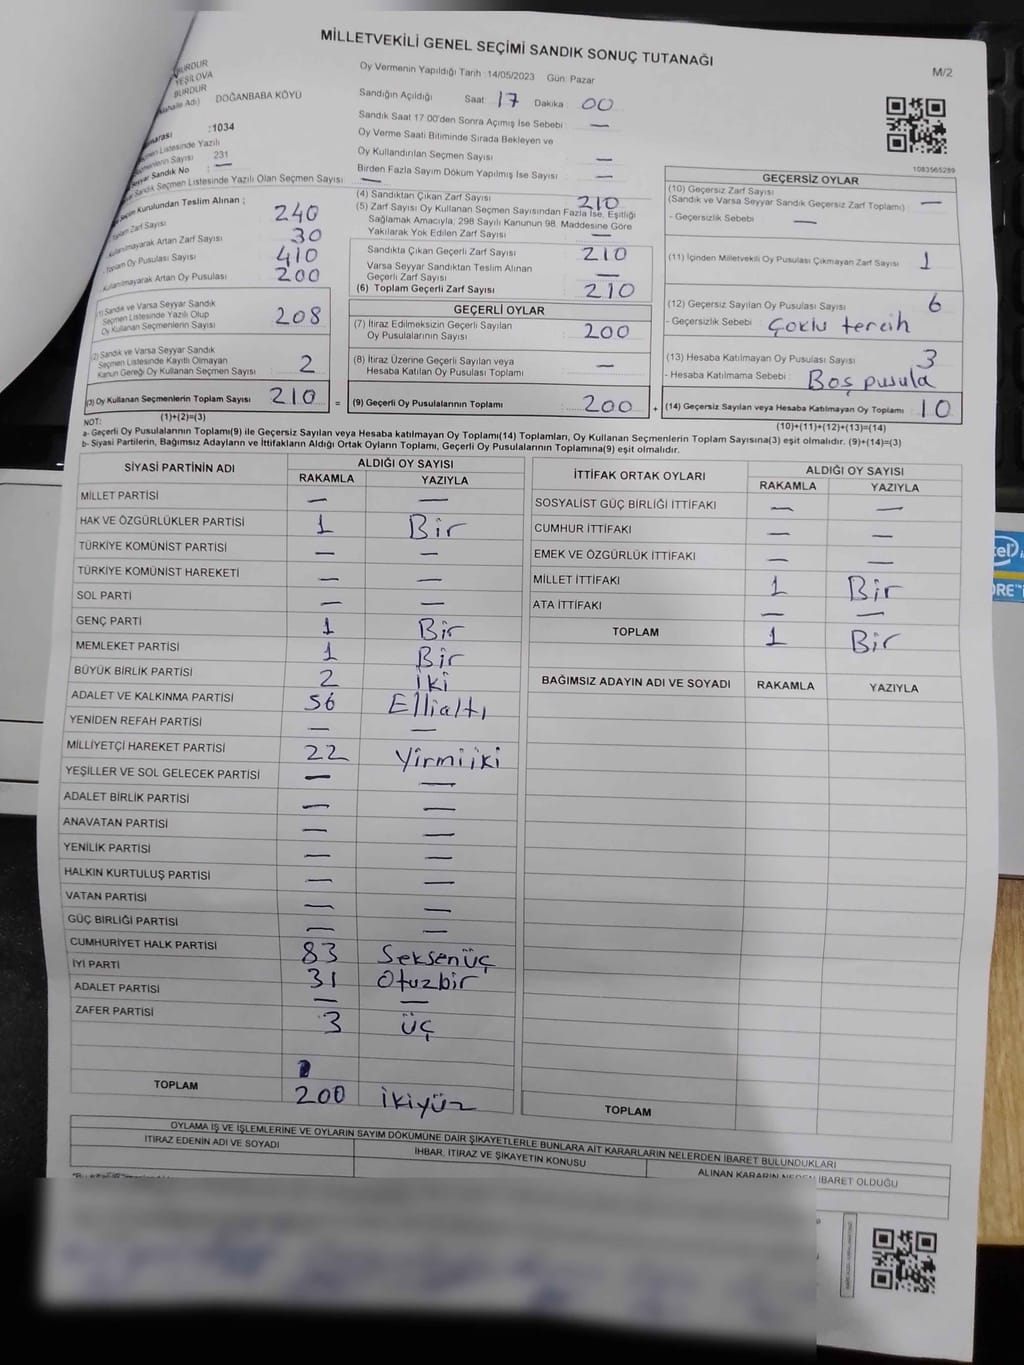 MİLLETVEKİLİ GENEL SEÇİMİ SANDIK SONUÇ TUTANAĞI
M/2
BURDUR
YEŞİLOVA
BURDUR
DOĞANBABA KÖYÜ
:1034
Listesinde Yazılı
Sayısı 231
Sandık No —
Sandık Seçmen Listesinde Yazılı Olan Seçmen Sayısı —
Oy Vermenin Yapıldığı Tarih :14/05/2023 Gün: Pazar
Sandığın Açıldığı Saat 17 Dakika 00
Sandık Saat 17:00'den Sonra Açımış İse Sebebi : —
Oy Verme Saati Bitiminde Sırada Bekleyen ve
Oy Kullandırılan Seçmen Sayısı —
Birden Fazla Sayım Döküm Yapılmış İse Sayısı : —
1083565289
Seçim Kurulundan Teslim Alınan ;
Toplam Zarf Sayısı 240
Kullanılmayarak Artan Zarf Sayısı 30
Toplam Oy Pusulası Sayısı 410
Kullanılmayarak Artan Oy Pusulası 200
(1) Sandık ve Varsa Seyyar Sandık
Seçmen Listesinde Yazılı Olup
Oy Kullanan Seçmenlerin Sayısı 208
(2) Sandık ve Varsa Seyyar Sandık
Seçmen Listesinde Kayıtlı Olmayan
Kanun Gereği Oy Kullanan Seçmen Sayısı 2
(3) Oy Kullanan Seçmenlerin Toplam Sayısı 210 =
(1)+(2)=(3)
(4) Sandıktan Çıkan Zarf Sayısı 210
(5) Zarf Sayısı Oy Kullanan Seçmen Sayısından Fazla İse, Eşitliği
Sağlamak Amacıyla, 298 Sayılı Kanunun 98. Maddesine Göre
Yakılarak Yok Edilen Zarf Sayısı —
Sandıkta Çıkan Geçerli Zarf Sayısı 210
Varsa Seyyar Sandıktan Teslim Alınan
Geçerli Zarf Sayısı —
(6) Toplam Geçerli Zarf Sayısı 210
GEÇERLİ OYLAR
(7) İtiraz Edilmeksizin Geçerli Sayılan
Oy Pusulalarının Sayısı : 200
(8) İtiraz Üzerine Geçerli Sayılan veya
Hesaba Katılan Oy Pusulası Toplamı : —
(9) Geçerli Oy Pusulalarının Toplamı : 200 +
GEÇERSİZ OYLAR
(10) Geçersiz Zarf Sayısı
(Sandık ve Varsa Seyyar Sandık Geçersiz Zarf Toplamı) : —
- Geçersizlik Sebebi : —
(11) İçinden Milletvekili Oy Pusulası Çıkmayan Zarf Sayısı : 1
(12) Geçersiz Sayılan Oy Pusulası Sayısı : 6
- Geçersizlik Sebebi : Çoklu tercih
(13) Hesaba Katılmayan Oy Pusulası Sayısı : 3
- Hesaba Katılmama Sebebi : Boş pusula
(14) Geçersiz Sayılan veya Hesaba Katılmayan Oy Toplamı : 10
(10)+(11)+(12)+(13)=(14)
NOT:
a- Geçerli Oy Pusulalarının Toplamı(9) ile Geçersiz Sayılan veya Hesaba katılmayan Oy Toplamı(14) Toplamları, Oy Kullanan Seçmenlerin Toplam Sayısına(3) eşit olmalıdır. (9)+(14)=(3)
b- Siyasi Partilerin, Bağımsız Adayların ve İttifakların Aldığı Ortak Oyların Toplamı, Geçerli Oy Pusulalarının Toplamına(9) eşit olmalıdır.
SİYASİ PARTİNİN ADI ALDIĞI OY SAYISI
RAKAMLA YAZIYLA
MİLLET PARTİSİ — —
HAK VE ÖZGÜRLÜKLER PARTİSİ 1 Bir
TÜRKİYE KOMÜNİST PARTİSİ — —
TÜRKİYE KOMÜNİST HAREKETİ — —
SOL PARTİ — —
GENÇ PARTİ 1 Bir
MEMLEKET PARTİSİ 1 Bir
BÜYÜK BİRLİK PARTİSİ 2 iki
ADALET VE KALKINMA PARTİSİ 56 Ellialtı
YENİDEN REFAH PARTİSİ — —
MİLLİYETÇİ HAREKET PARTİSİ 22 Yirmiiki
YEŞİLLER VE SOL GELECEK PARTİSİ — —
ADALET BİRLİK PARTİSİ — —
ANAVATAN PARTİSİ — —
YENİLİK PARTİSİ — —
HALKIN KURTULUŞ PARTİSİ — —
VATAN PARTİSİ — —
GÜÇ BİRLİĞİ PARTİSİ — —
CUMHURİYET HALK PARTİSİ 83 Seksenüç
İYİ PARTİ 31 Otuzbir
ADALET PARTİSİ — —
ZAFER PARTİSİ 3 üç
TOPLAM 200 ikiyüz
İTTİFAK ORTAK OYLARI ALDIĞI OY SAYISI
RAKAMLA YAZIYLA
SOSYALİST GÜÇ BİRLİĞİ İTTİFAKI — —
CUMHUR İTTİFAKI — —
EMEK VE ÖZGÜRLÜK İTTİFAKI — —
MİLLET İTTİFAKI 1 Bir
ATA İTTİFAKI — —
TOPLAM 1 Bir
BAĞIMSIZ ADAYIN ADI VE SOYADI RAKAMLA YAZIYLA
TOPLAM
OYLAMA İŞ VE İŞLEMLERİNE VE OYLARIN SAYIM DÖKÜMÜNE DAİR ŞİKAYETLERLE BUNLARA AİT KARARLARIN NELERDEN İBARET BULUNDUKLARI
İTİRAZ EDENİN ADI VE SOYADI İHBAR, İTİRAZ VE ŞİKAYETİN KONUSU ALINAN KARARIN NEDEN İBARET OLDUĞU